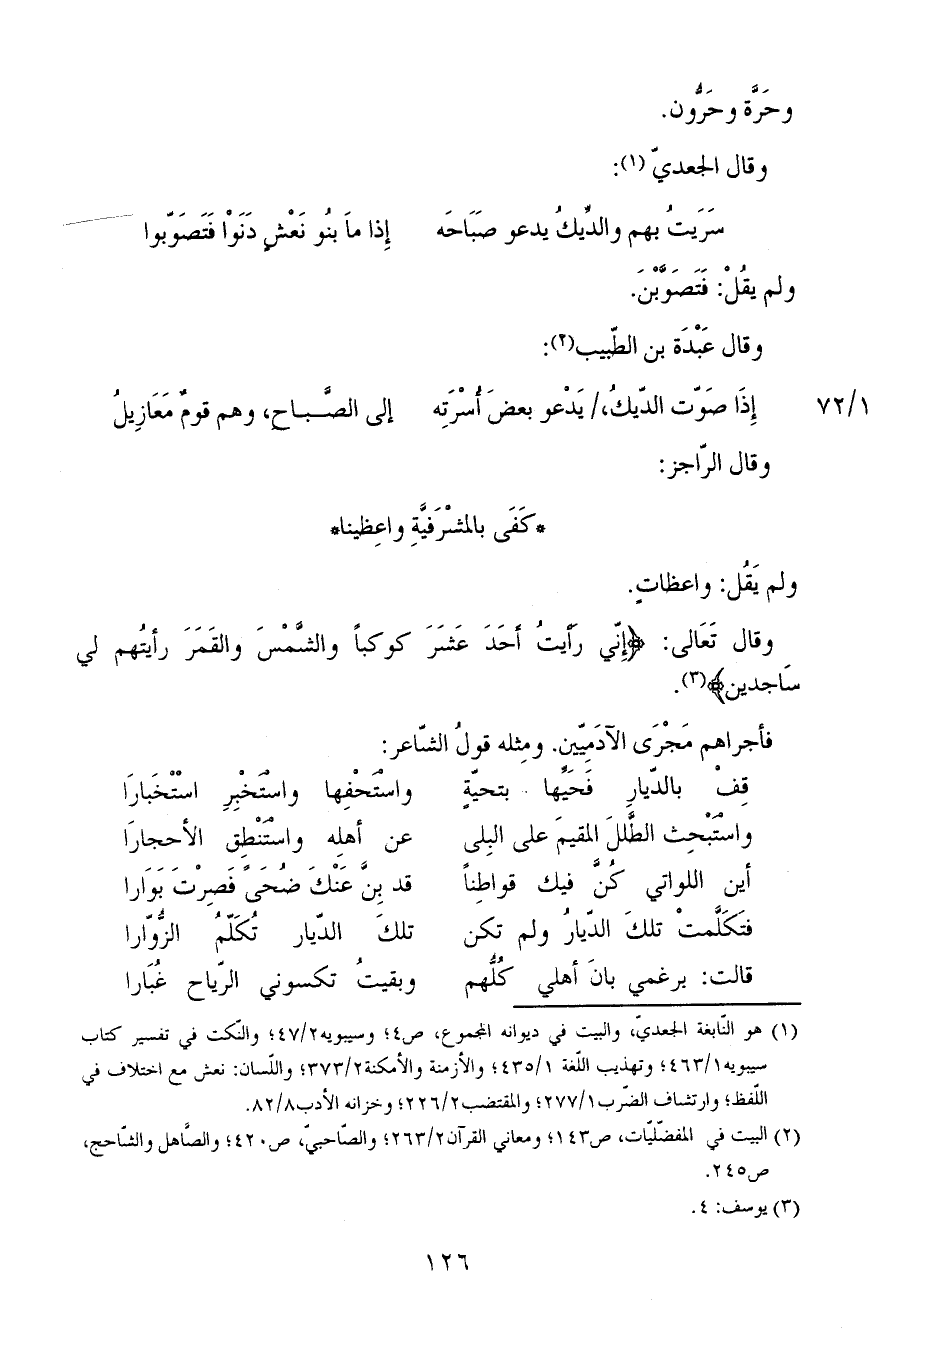 وحَرَّة وحَرُّون.
وقال الجعديّ (١):
سَرَيتُ بهم والدِّيكُ يدعو صبَاحَه إذا ماَ بنُو نَعْشٍ دَنَوْا فَتَصَوّبوا
ولم يقُلْ: فَتَصوَّبْنَ.
وقال عَبْدَة بن الطّبيب(٢):
٧٢/١ إِذَا صوّت الديّكُ،/ يَدْعو بعضَ أُسْرَتِه إلى الصَّباحِ، وهم قومٌ مَعَازِيلُ
وقال الرّاجز:
*كَفَى بالمشْرَفيَّةِ واعِظينا*
ولم يَقُل: واعظاتٍ.
وقال تَعَالى: ﴿إنّي رَأَيتُ أحَدَ عَشَرَ كوكباً والشَّمْسَ والقَمَرَ رأيتُهم لي
سَاجدين﴾(٣).
فأجراهم مَجْرَى الآدَميّين. ومِثله قولُ الشّاعر:
قِفْ بالدّيارِ فَحَيِّها بتحيّةٍ واستَحْفِها واستَخْبِرِ استْخَبارَا
واستَبْحثِ الطَّللَ المقيمَ على البِلى عن أهلِه واستَنْطِق الأحجارَا
أين اللواتي كُنَّ فيك قواطناً قد بِنَّ عَنْكَ ضُحَىً فَصِرْتَ بَوَارا
فتَكَلَّمتْ تلكَ الدّيارُ ولم تكن تلكَ الدّيار تُكَلّمُ الزُّوّارا
قالت: برغمي بانَ أهلي كُلُّهم وبقيتُ تكسوني الرّياح غُبَارا
(١) هو النّابغة الجعديّ، والبيت في ديوانه المجموع، ص٤؛ وسيبويه٤٧/٢؛ والنّكت في تفسير كتاب
سيبويه٤٦٣/١؛ وتهذيب اللّغة ٤٣٥/١؛ والأزمنة والأمكنة٣٧٣/٢؛ واللّسان: نعش مع اختلاف في
اللّفظ؛ وارتشاف الضّرب٢٧٧/١؛ والمقتضب٢٢٦/٢؛ وخزانه الأدب٨٢/٨.
(٢) البيت في المفضّليّات، ص١٤٣؛ ومعاني القرآن٢٦٣/٢؛ والصّاحبيّ، ص٤٢٠؛ والصَّاهل والشّاحج،
ص٢٤٥.
(٣) يوسف: ٤.
١٢٦